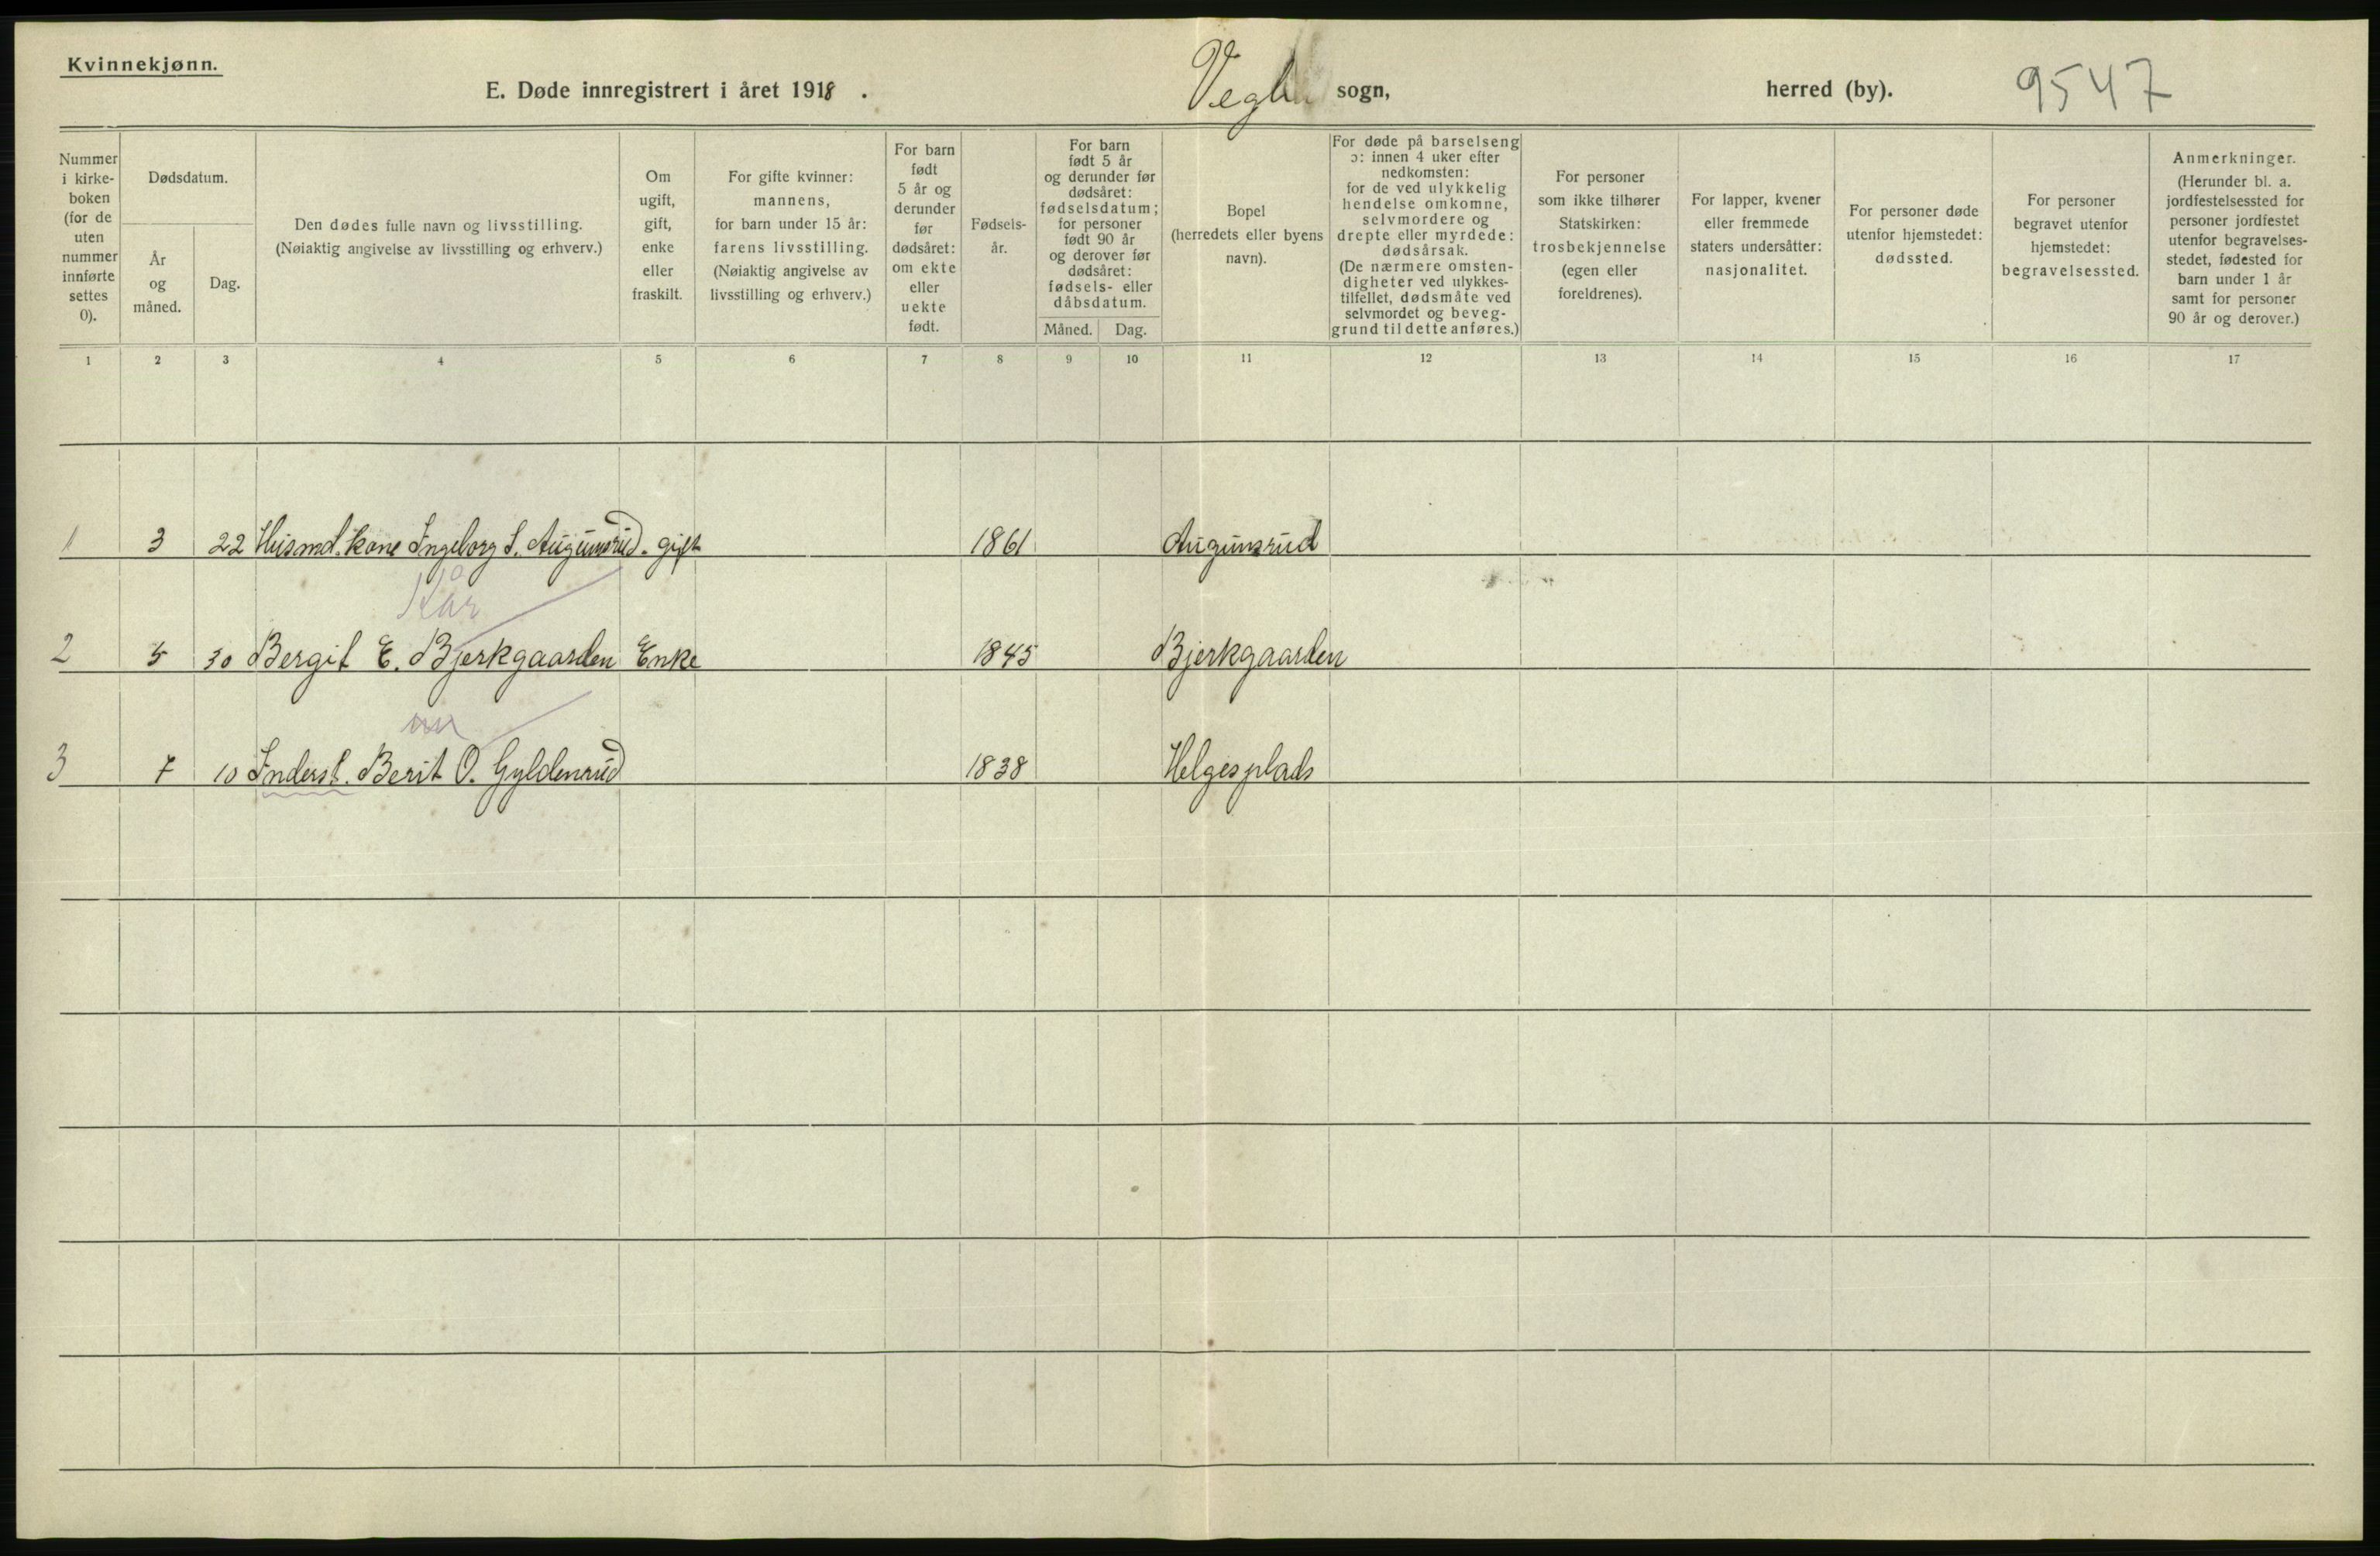 Kvinnekjønn.
E. Døde innregistrert i året 1918.
sogn,
herred (by).
9547
Nummer
i kirke-
boken
(for de
uten
nummer
innførte
settes
0).
Dødsdatum.
År
og
måned.
Dag.
Den dødes fulle navn og livsstilling.
(Nøiaktig angivelse av livsstilling og erhverv.)
Om
ugift,
gift,
enke
eller
fraskilt.
For gifte kvinner:
mannens,
for barn under 15 år:
farens livsstilling.
(Nøiaktig angivelse av
livsstilling og erhverv.)
For barn
født
5 år og
derunder
før
dødsåret:
om ekte
eller
uekte
født.
Fødsels-
år.
For barn
født 5 år
og derunder før
dødsåret:
fødselsdatum;
for personer
født 90 år
og derover før
dødsåret:
fødsels- eller
dåbsdatum.
Måned.
Dag.
Bopel
(herredets eller byens
navn).
For døde på barselseng
ɔ: innen 4 uker efter
nedkomsten:
for de ved ulykkelig
hendelse omkomne,
selvmordere og
drepte eller myrdede:
dødsårsak.
(De nærmere omsten-
digheter ved ulykkes-
tilfellet, dødsmåte ved
selvmordet og beveg-
grund til dette anføres.)
For personer
som ikke tilhører
Statskirken:
trosbekjennelse
(egen eller
foreldrenes).
For lapper, kvener
eller fremmede
staters undersåtter:
nasjonalitet.
For personer døde
utenfor hjemstedet:
dødssted.
For personer
begravet utenfor
hjemstedet:
begravelsessted.
Anmerkninger.
(Herunder bl. a.
jordfestelsessted for
personer jordfestet
utenfor begravelses-
stedet, fødested for
barn under 1 år
samt for personer
90 år og derover.)
1 2 3 4 5 6 7 8 9 10 11 12 13 14 15 16 17
1 3 22 Husmd. kone Ingeborg S. Augunsrud. gift 1861 Augunsrud
Kår
2 5 30 Bergit E. Bjerkgaarden Enke 1845 Bjerkgaarden
3 7 10 Inderst. Berit O. Gyldenrud 1838 Helgesplads